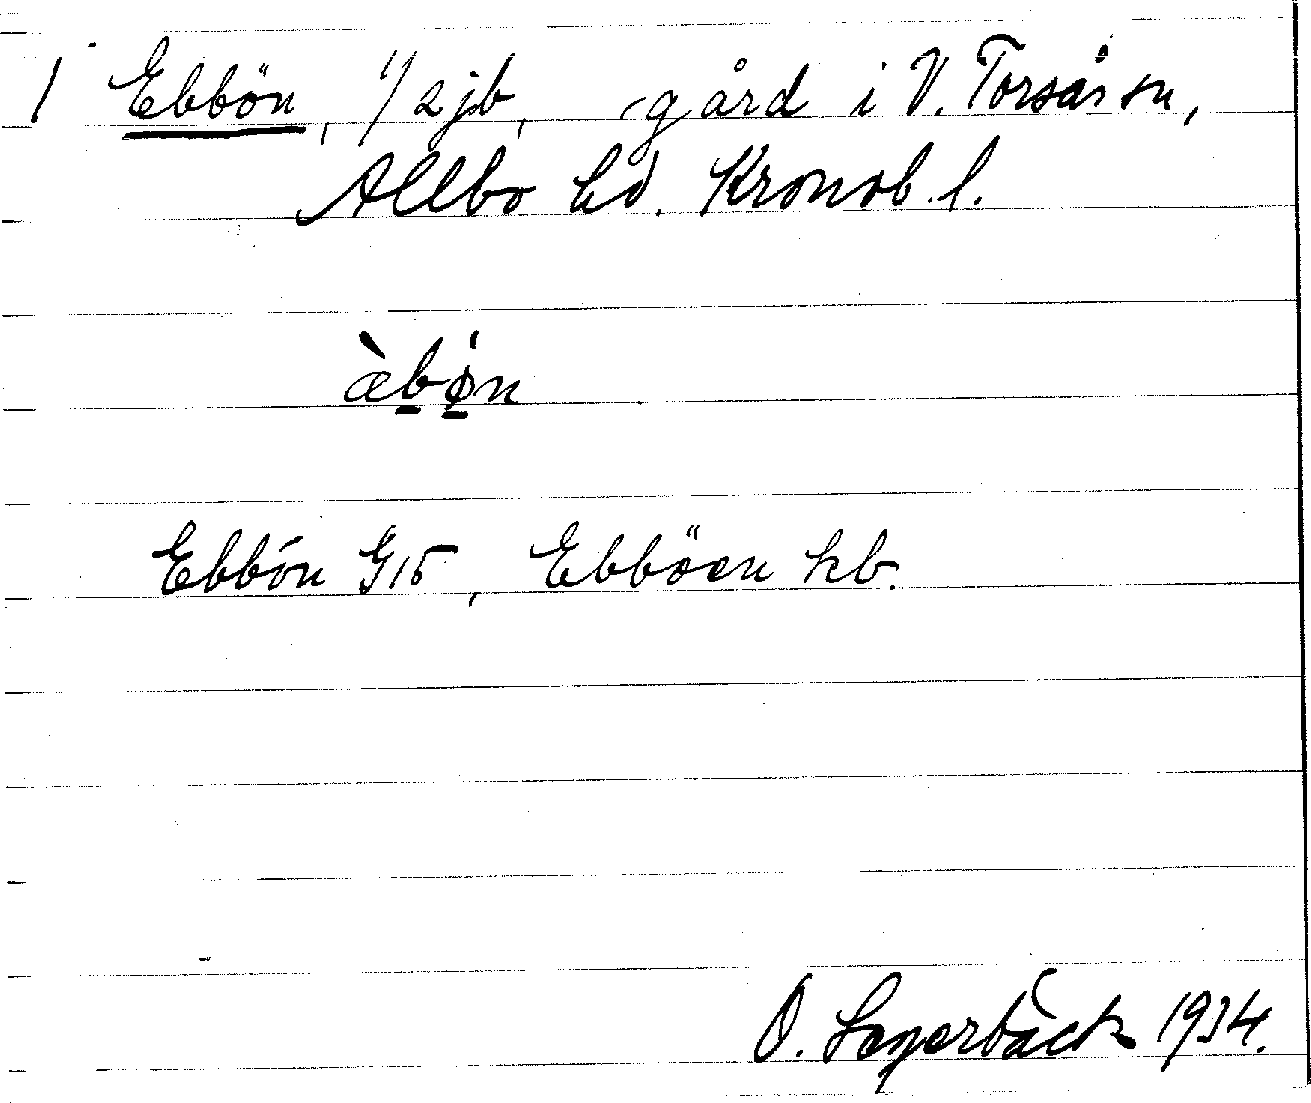 1 Ebbön, 1/2 jb, gård i V. Torsås sn,
Allbo hd. Kronob. l.
æ̀b̲ǿ̲n
Ebbön G 15, Ebböen hb.
O. Lagerbäck 1934.